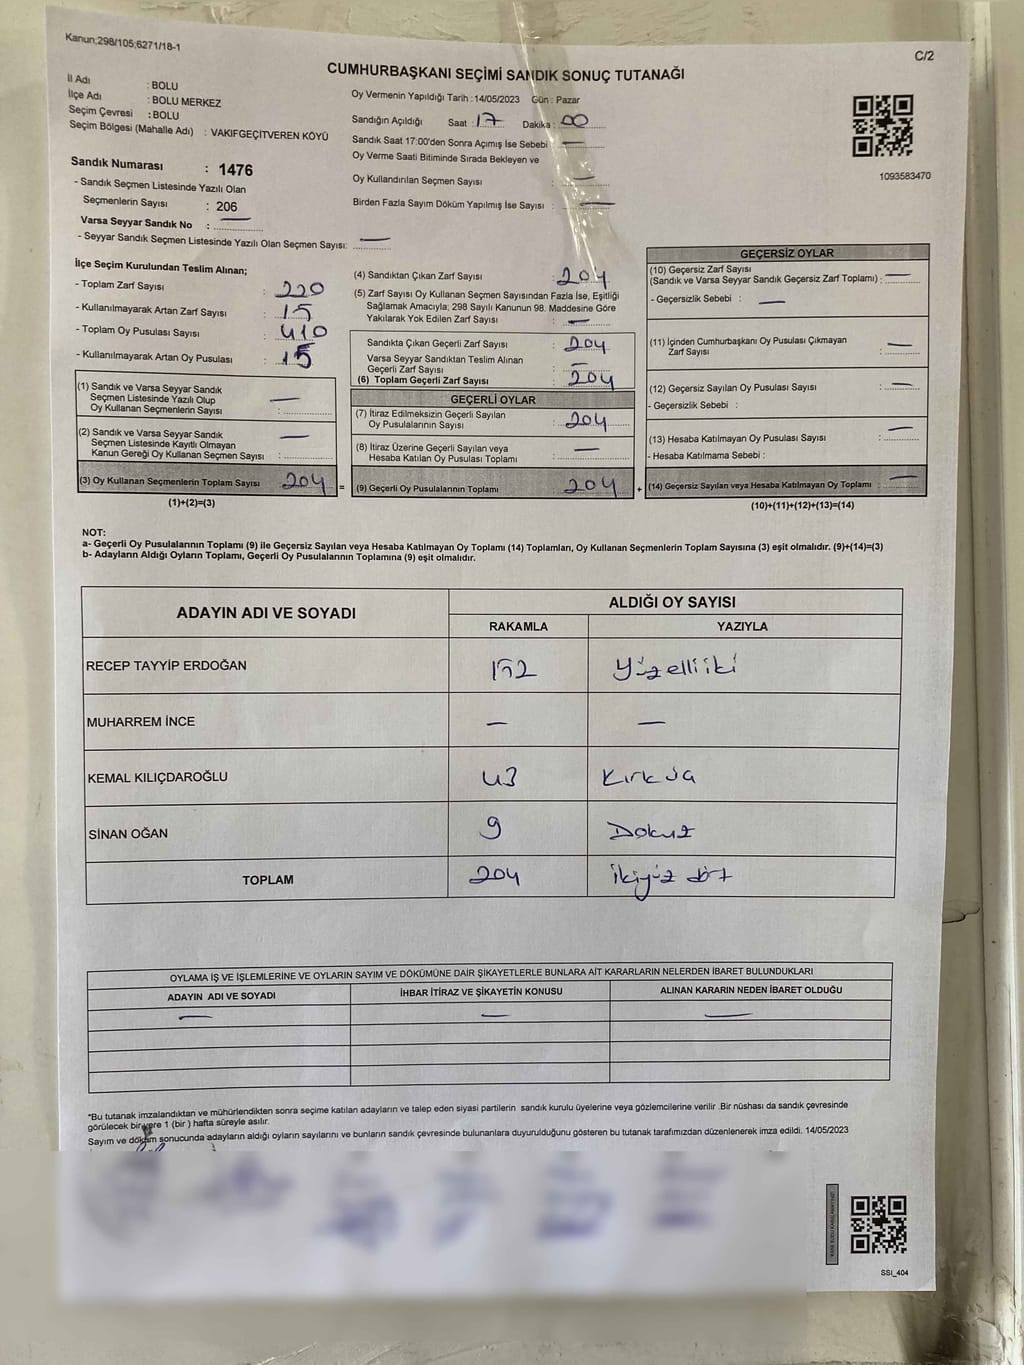 Kanun;298/105;6271/18-1
C/2
CUMHURBAŞKANI SEÇİMİ SANDIK SONUÇ TUTANAĞI
İl Adı : BOLU
İlçe Adı : BOLU MERKEZ
Seçim Çevresi : BOLU
Seçim Bölgesi (Mahalle Adı) : VAKIFGEÇİTVEREN KÖYÜ
Sandık Numarası : 1476
- Sandık Seçmen Listesinde Yazılı Olan
Seçmenlerin Sayısı : 206
Varsa Seyyar Sandık No : —
- Seyyar Sandık Seçmen Listesinde Yazılı Olan Seçmen Sayısı: —
Oy Vermenin Yapıldığı Tarih : 14/05/2023 Gün : Pazar
Sandığın Açıldığı Saat : 17 Dakika : 00
Sandık Saat 17:00'den Sonra Açımış İse Sebebi : —
Oy Verme Saati Bitiminde Sırada Bekleyen ve
Oy Kullandırılan Seçmen Sayısı : —
Birden Fazla Sayım Döküm Yapılmış İse Sayısı : —
1093583470
İlçe Seçim Kurulundan Teslim Alınan;
- Toplam Zarf Sayısı : 220
- Kullanılmayarak Artan Zarf Sayısı : 15
- Toplam Oy Pusulası Sayısı : 410
- Kullanılmayarak Artan Oy Pusulası : 15
(1) Sandık ve Varsa Seyyar Sandık
Seçmen Listesinde Yazılı Olup
Oy Kullanan Seçmenlerin Sayısı : —
(2) Sandık ve Varsa Seyyar Sandık
Seçmen Listesinde Kayıtlı Olmayan
Kanun Gereği Oy Kullanan Seçmen Sayısı : —
(3) Oy Kullanan Seçmenlerin Toplam Sayısı : 204 =
(1)+(2)=(3)
(4) Sandıktan Çıkan Zarf Sayısı : 204
(5) Zarf Sayısı Oy Kullanan Seçmen Sayısından Fazla İse, Eşitliği
Sağlamak Amacıyla; 298 Sayılı Kanunun 98. Maddesine Göre
Yakılarak Yok Edilen Zarf Sayısı : —
Sandıkta Çıkan Geçerli Zarf Sayısı : 204
Varsa Seyyar Sandıktan Teslim Alınan
Geçerli Zarf Sayısı : —
(6) Toplam Geçerli Zarf Sayısı : 204
GEÇERLİ OYLAR
(7) İtiraz Edilmeksizin Geçerli Sayılan
Oy Pusulalarının Sayısı : 204
(8) İtiraz Üzerine Geçerli Sayılan veya
Hesaba Katılan Oy Pusulası Toplamı : —
(9) Geçerli Oy Pusulalarının Toplamı : 204 +
GEÇERSİZ OYLAR
(10) Geçersiz Zarf Sayısı
(Sandık ve Varsa Seyyar Sandık Geçersiz Zarf Toplamı) : —
- Geçersizlik Sebebi : —
(11) İçinden Cumhurbaşkanı Oy Pusulası Çıkmayan
Zarf Sayısı : —
(12) Geçersiz Sayılan Oy Pusulası Sayısı : —
- Geçersizlik Sebebi :
(13) Hesaba Katılmayan Oy Pusulası Sayısı : —
- Hesaba Katılmama Sebebi :
(14) Geçersiz Sayılan veya Hesaba Katılmayan Oy Toplamı : —
(10)+(11)+(12)+(13)=(14)
NOT:
a- Geçerli Oy Pusulalarının Toplamı (9) ile Geçersiz Sayılan veya Hesaba Katılmayan Oy Toplamı (14) Toplamları, Oy Kullanan Seçmenlerin Toplam Sayısına (3) eşit olmalıdır. (9)+(14)=(3)
b- Adayların Aldığı Oyların Toplamı, Geçerli Oy Pusulalarının Toplamına (9) eşit olmalıdır.
ADAYIN ADI VE SOYADI ALDIĞI OY SAYISI
RAKAMLA YAZIYLA
RECEP TAYYİP ERDOĞAN 152 Yüzelliiki
MUHARREM İNCE — —
KEMAL KILIÇDAROĞLU 43 Kırk
SİNAN OĞAN 9 Dokuz
TOPLAM 204 İkiyüz dört
OYLAMA İŞ VE İŞLEMLERİNE VE OYLARIN SAYIM VE DÖKÜMÜNE DAİR ŞİKAYETLERLE BUNLARA AİT KARARLARIN NELERDEN İBARET BULUNDUKLARI
ADAYIN ADI VE SOYADI İHBAR İTİRAZ VE ŞİKAYETİN KONUSU ALINAN KARARIN NEDEN İBARET OLDUĞU
— — —
*Bu tutanak imzalandıktan ve mühürlendikten sonra seçime katılan adayların ve talep eden siyasi partilerin sandık kurulu üyelerine veya gözlemcilerine verilir .Bir nüshası da sandık çevresinde
görülecek bir yere 1 (bir ) hafta süreyle asılır.
Sayım ve döküm sonucunda adayların aldığı oyların sayılarını ve bunların sandık çevresinde bulunanlara duyurulduğunu gösteren bu tutanak tarafımızdan düzenlenerek imza edildi. 14/05/2023
SSI_404